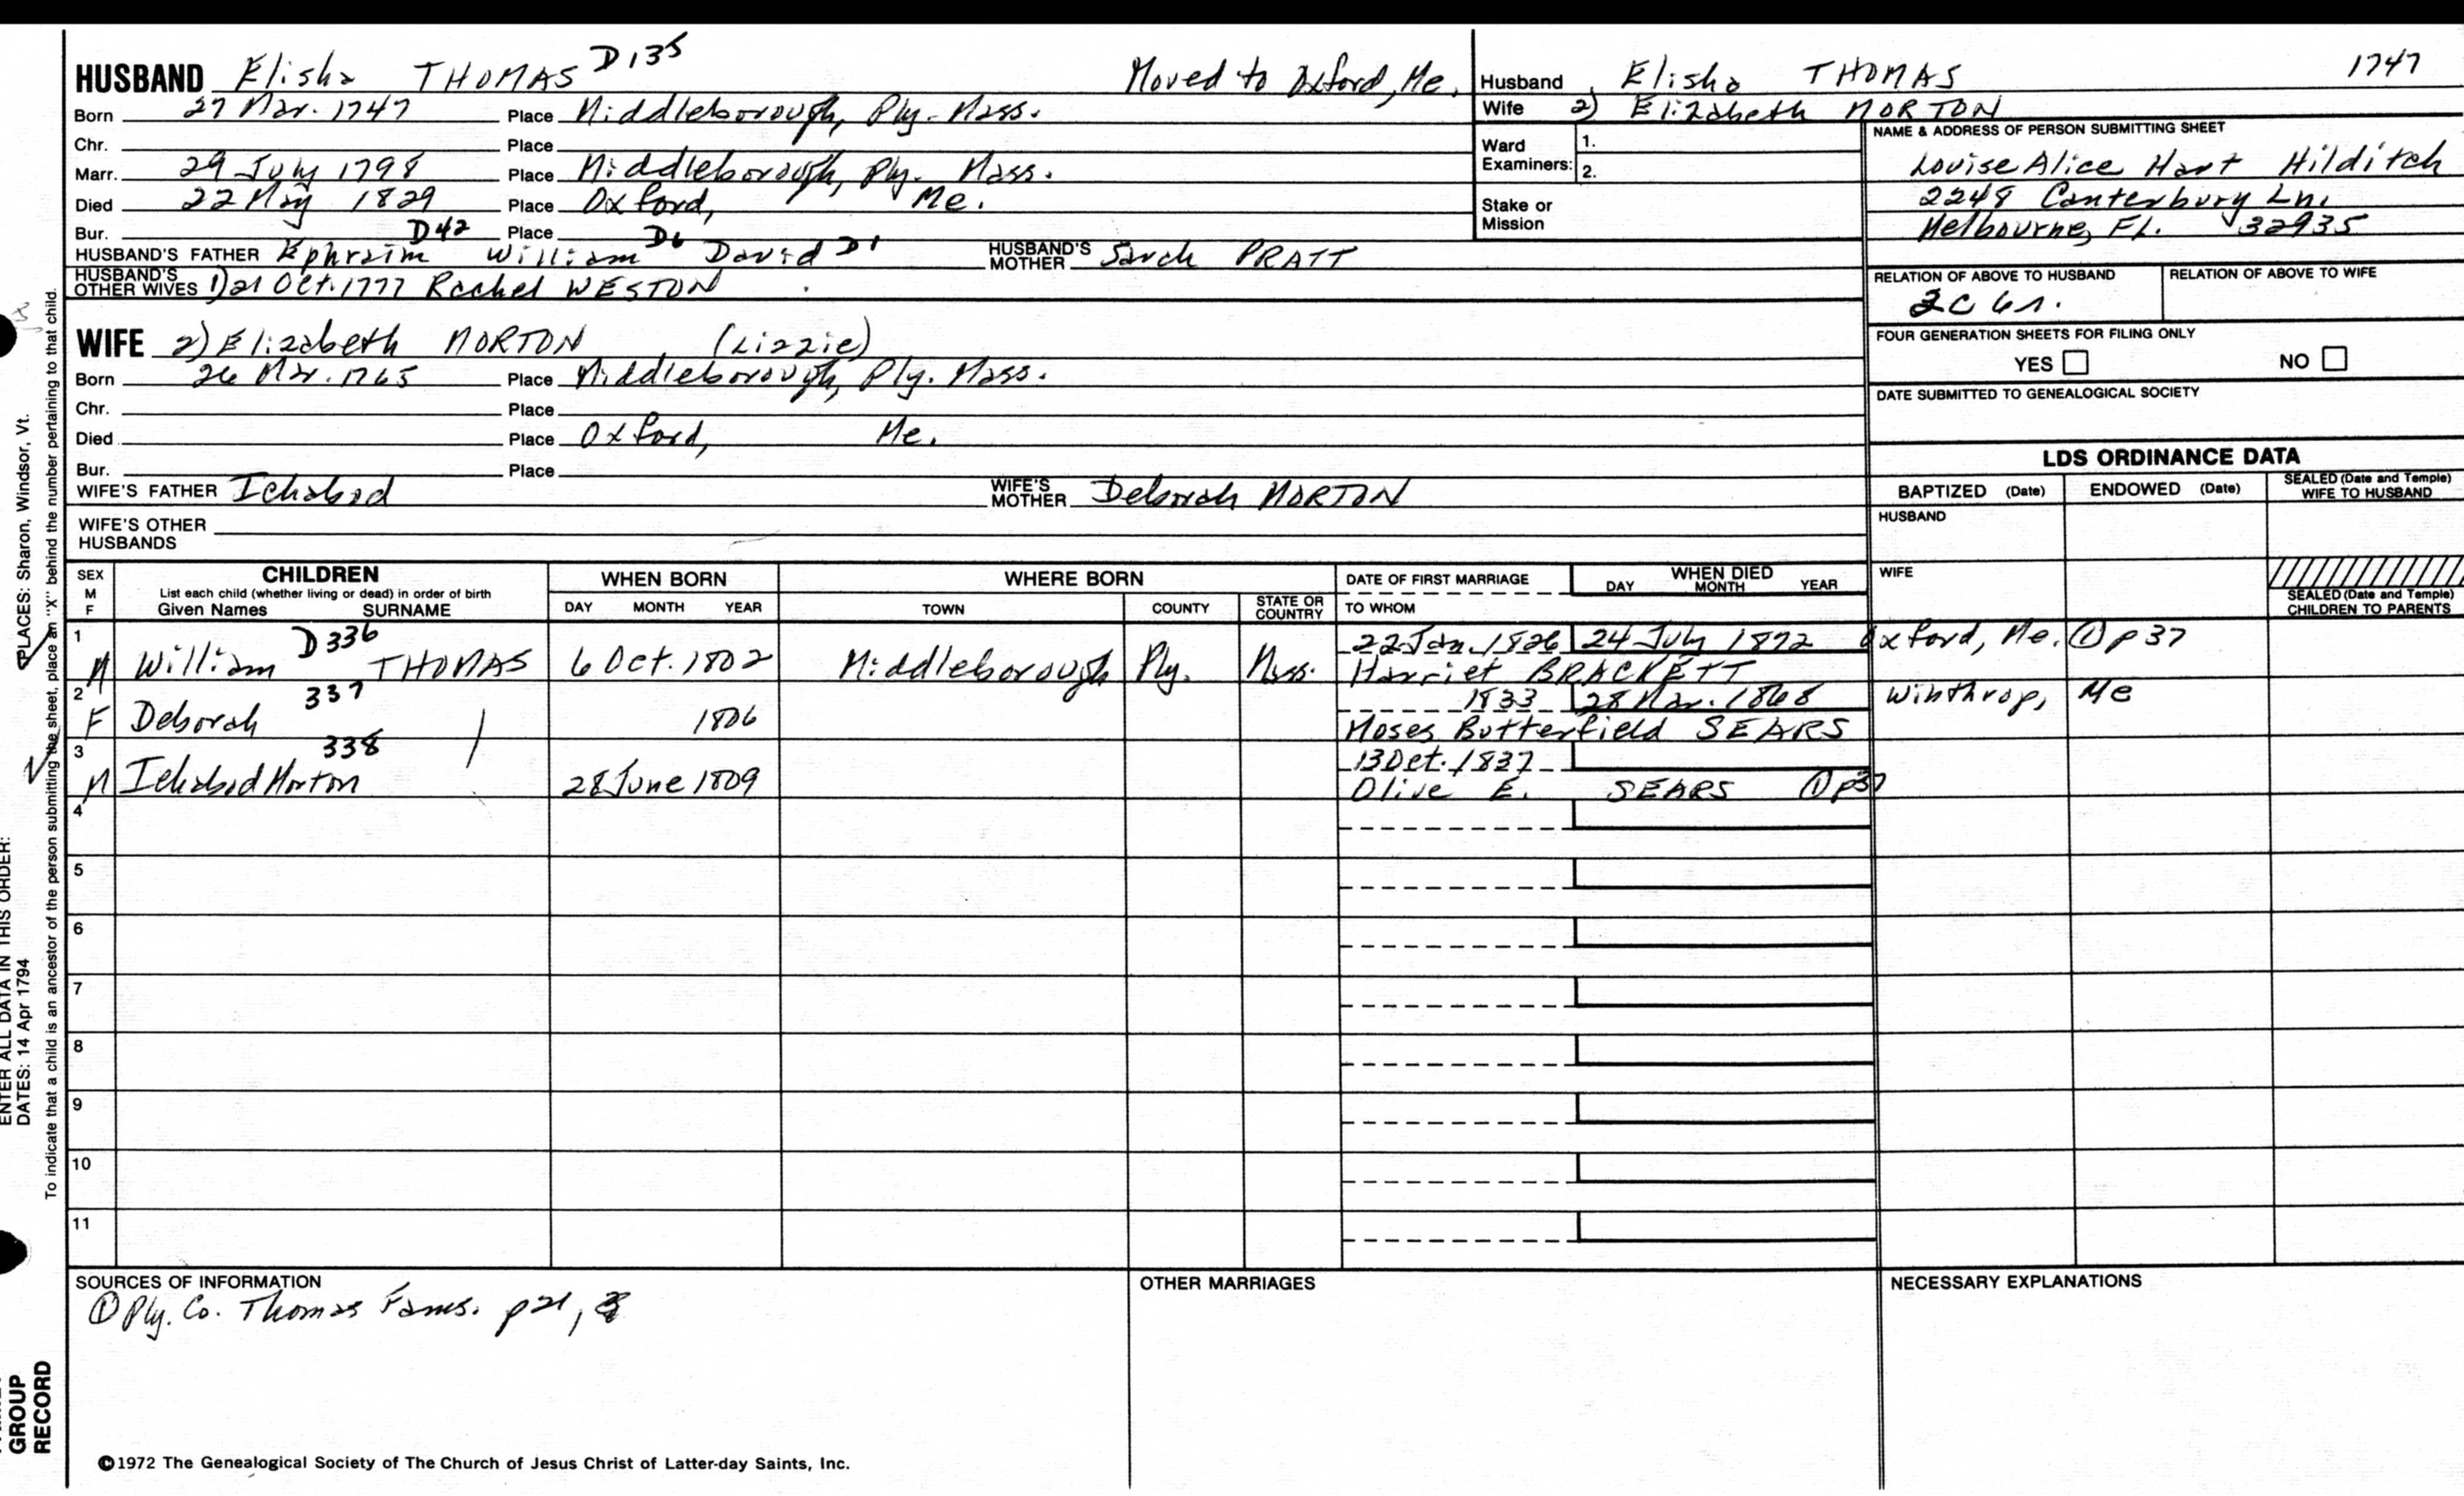 HUSBAND Elisha THOMAS D135 Moved to Oxford, Me.
Born 27 Mar. 1747 Place Middleborough, Ply. Mass.
Chr. Place
Marr. 29 July 1798 Place Middleborough, Ply. Mass.
Died 22 May 1829 Place Oxford, Me.
Bur. Place
HUSBAND'S FATHER Ephraim D42 William D6 David D1 HUSBAND'S MOTHER Sarah PRATT
HUSBAND'S OTHER WIVES 1) 21 Oct. 1777 Rachel WESTON
WIFE 2) Elizabeth MORTON (Lizzie)
Born 26 Mar. 1765 Place Middleborough, Ply. Mass.
Chr. Place
Died Place Oxford, Me.
Bur. Place
WIFE'S FATHER Ichabod WIFE'S MOTHER Deborah MORTON
WIFE'S OTHER HUSBANDS
Husband Elisha THOMAS 1747
Wife 2) Elizabeth MORTON
Ward Examiners: 1.
2.
Stake or Mission
NAME & ADDRESS OF PERSON SUBMITTING SHEET
Louise Alice Hart Hilditch
2248 Canterbury Ln.
Melbourne, FL. 32935
RELATION OF ABOVE TO HUSBAND RELATION OF ABOVE TO WIFE
2C 6r.
FOUR GENERATION SHEETS FOR FILING ONLY
YES NO
DATE SUBMITTED TO GENEALOGICAL SOCIETY
LDS ORDINANCE DATA
BAPTIZED (Date) ENDOWED (Date) SEALED (Date and Temple) WIFE TO HUSBAND
HUSBAND
WIFE
SEALED (Date and Temple) CHILDREN TO PARENTS
SEX M F CHILDREN WHEN BORN WHERE BORN DATE OF FIRST MARRIAGE WHEN DIED
List each child (whether living or dead) in order of birth
Given Names SURNAME DAY MONTH YEAR TOWN COUNTY STATE OR COUNTRY TO WHOM DAY MONTH YEAR
1 D336 22 Jan. 1826 24 July 1872 Oxford, Me. ① p37
M William THOMAS 6 Oct. 1802 Middleborough Ply. Mass. Harriet BRACKETT
2 337 1833 28 Mar. 1868 Winthrop, Me
F Deborah 1806 Moses Butterfield SEARS
3 338 13 Oct. 1837
M Ichabod Morton 28 June 1809 Olive E. SEARS ① p37
4
5
6
7
8
9
10
11
SOURCES OF INFORMATION OTHER MARRIAGES NECESSARY EXPLANATIONS
① Ply. Co. Thomas Fams. p21,
©1972 The Genealogical Society of The Church of Jesus Christ of Latter-day Saints, Inc.
PLACES: Sharon, Windsor, Vt.
To indicate that a child is an ancestor of the person submitting the sheet, place an "X" behind the number pertaining to that child.
ENTER ALL DATA IN THIS ORDER:
DATES: 14 Apr 1794
GROUP
RECORD